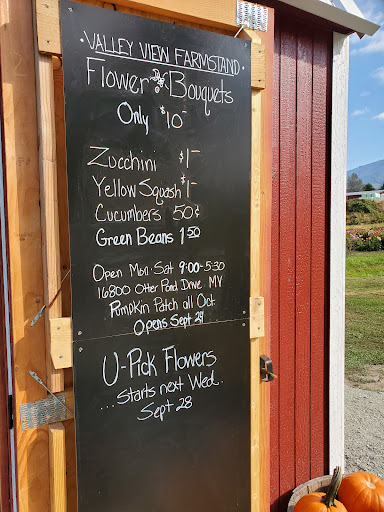 · VALLEY VIEW FARMSTAND ·
Flower Bouquets
Only $10-
Zucchini $1-
Yellow Squash $1-
Cucumbers 50¢
Green Beans 1 50
Open Mon-Sat 9:00-5:30
16800 Otter Pond Drive MV
Pumpkin Patch all Oct
Opens Sept 29
U-Pick Flowers
...Starts next Wed.
Sept 28